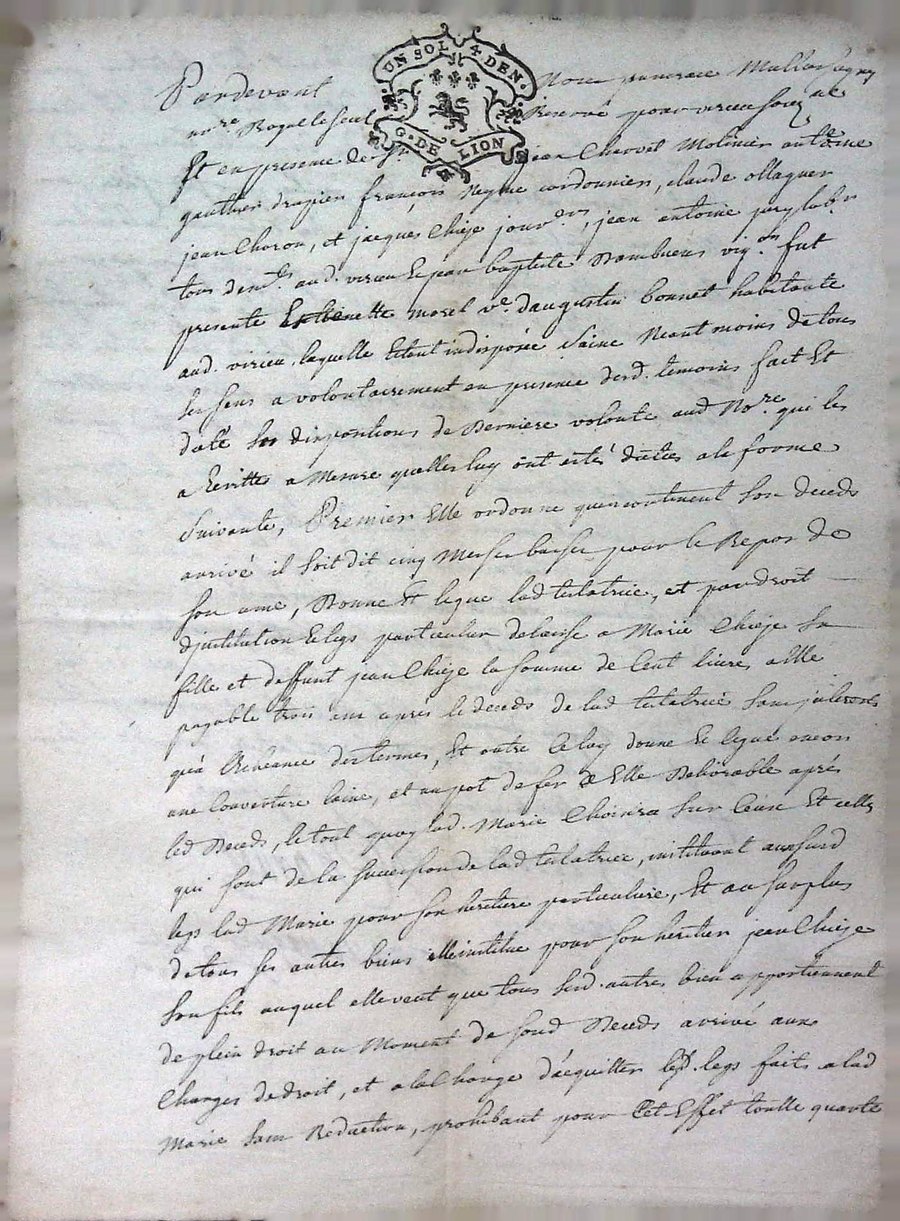 UN SOL 4 DEN.
G. DE LION
Pardevant
nore Royal le seul Reservé pour virieu
Et en presence de Sr jean Charvet Molinier antoine
gauthier drapier françois Reyme cordonnier, claude ollagner
jean Choron, et jacques Chieze jourers, jean antoine
tous demts aud. virieu et jean baptiste Dambuens vigon fut
presente Estienette morel ve. d'augustin bonnet habitante
aud. virieu, laquelle Etant indisposée Saine Neant moins de tous
ses sens a volontairement en presence desd. temoins fait Et
dicté ses dispositions de Derniere volonté aud Nore. qui les
a Ecrittes a Mesure quelles luy ont estés dictées a la forme
Suivante, Premier Elle ordonne quincontinent Son deceds
arrivé il Soit dit cinq Messes basses pour le Repos de
son ame, Donne Et legue lad testatrice, et par droit
djnstitution et legs particulier delaisse a Marie Chieze sa
fille et deffunt jean Chieze la somme de Cent livres a Elle
payable trois ans aprés le deceds de lad testatrice sans jnterests
qu'a Echeance des termes, Et outre Ce luy donne Et legue encor
une Couverture laine, et un pot de fer a Elle Delivrable aprés
led Deceds, le tout quoy lad. Marie Choisira sur Ceux Et celles
qui sont de la succession de lad testatrice, instituant aux susd
legs lad Marie pour son heritiere particuliere, Et au surplus
de tous ses autres biens elle institue pour son heritier jean Chieze
son fils auquel elle veut que tous sesd. autres biens appartiennent
de plein droit au Moment de sond Deceds arrivé aux
Charges de droit, et a la Charge d'acquitter lesd. legs faits a lad
Marie sans Reduction, prohibant pour Cet Effet toutte quarte